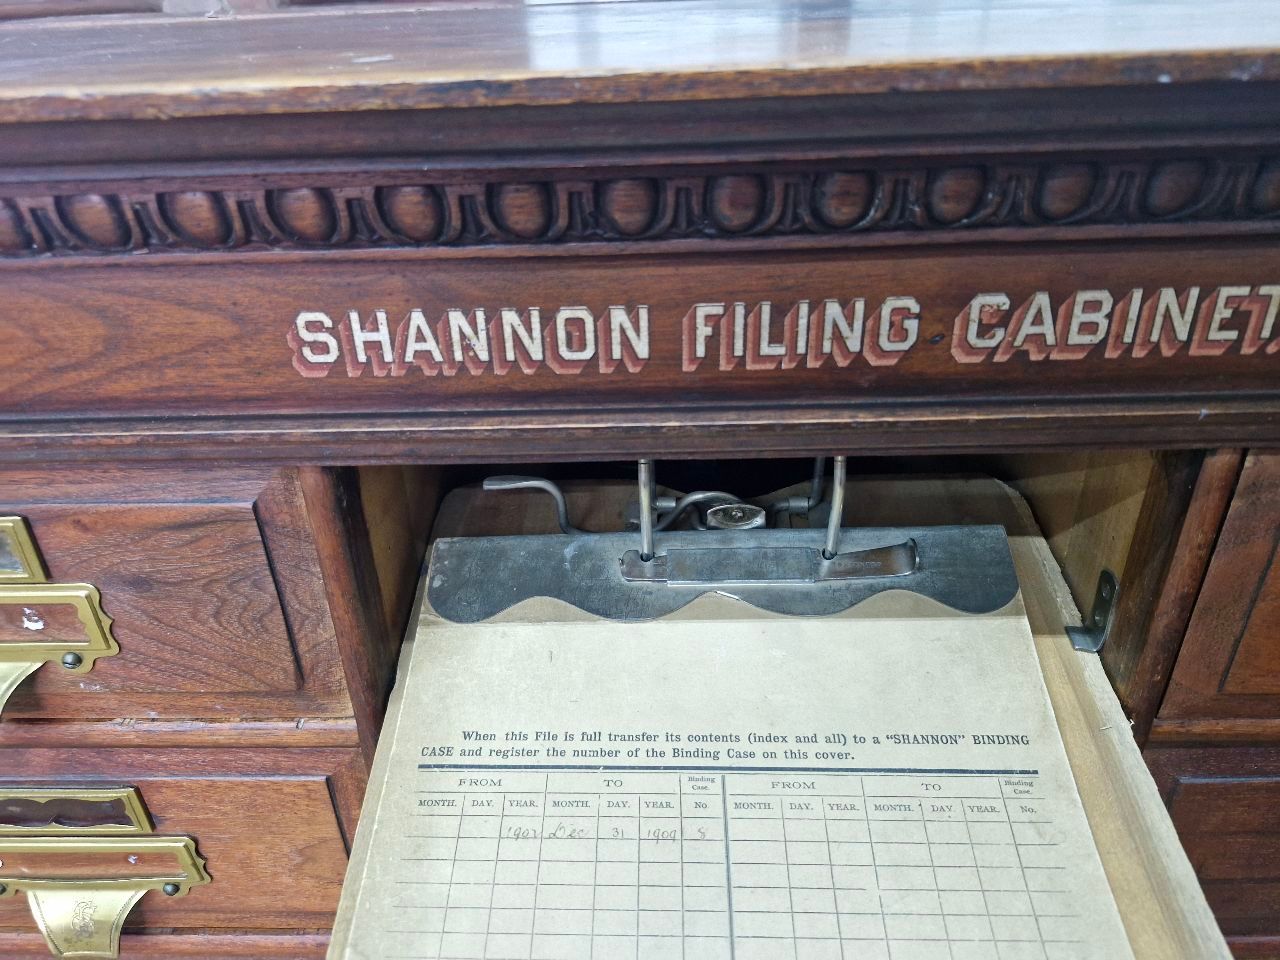 SHANNON FILING CABINET
When this File is full transfer its contents (index and all) to a "SHANNON" BINDING
CASE and register the number of the Binding Case on this cover.
FROM TO Binding Case. FROM TO Binding Case.
MONTH. DAY. YEAR. MONTH. DAY. YEAR. No. MONTH. DAY. YEAR. MONTH. DAY. YEAR. No.
Dec 31 1909 8